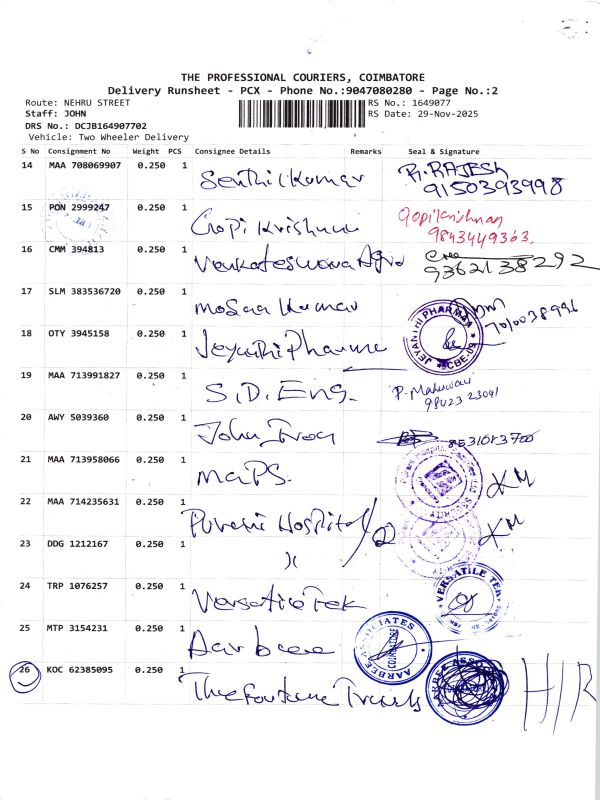 THE PROFESSIONAL COURIERS, COIMBATORE
Delivery Runsheet - PCX - Phone No.:9047080280 - Page No.:2
Route: NEHRU STREET
RS No.: 1649077
Staff: JOHN
RS Date: 29-Nov-2025
DRS No.: DCJB164907702
Vehicle: Two Wheeler Delivery
S No Consignment No Weight PCS Consignee Details Remarks Seal & Signature
14 MAA 708069907 0.250 1 Senthil Kumar R. RAJESH
9150393998
15 PON 2999247 0.250 1 Gopi Krishnan Gopi Krishnan
9843449363.
16 CMM 394813 0.250 1 Venkateswara Agro
9362138292
17 SLM 383536720 0.250 1 Kumar
18 OTY 3945158 0.250 1 Jeyanthi Pharma JEYANTHI PHARMAA CBE-09
19 MAA 713991827 0.250 1 S.D. Eng. P.
98423 23091
20 AWY 5039360 0.250 1 John
21 MAA 713958066 0.250 1 MaPS. KM
22 MAA 714235631 0.250 1 Hospital (2) KM
23 DDG 1212167 0.250 1
24 TRP 1076257 0.250 1 Versatile Tek VERSATILE TEK
25 MTP 3154231 0.250 1 Aarbee AARBEE ASSOCIATES COIMBATORE
26 KOC 62385095 0.250 1 The Fortune Travels AARBEE H/R